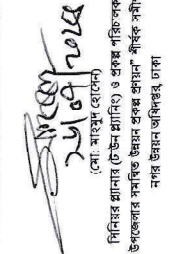 ২৮/০৭/২০২৪
(মো: মাহমুদ হোসেন)
সিনিয়র প্ল্যানার (টাউন প্ল্যানিং) ও প্রকল্প পরিচালক
উপজেলার সমন্বিত উন্নয়ন প্রকল্প প্রণয়ন” শীর্ষক সমী
নগর উন্নয়ন অধিদপ্তর, ঢাকা